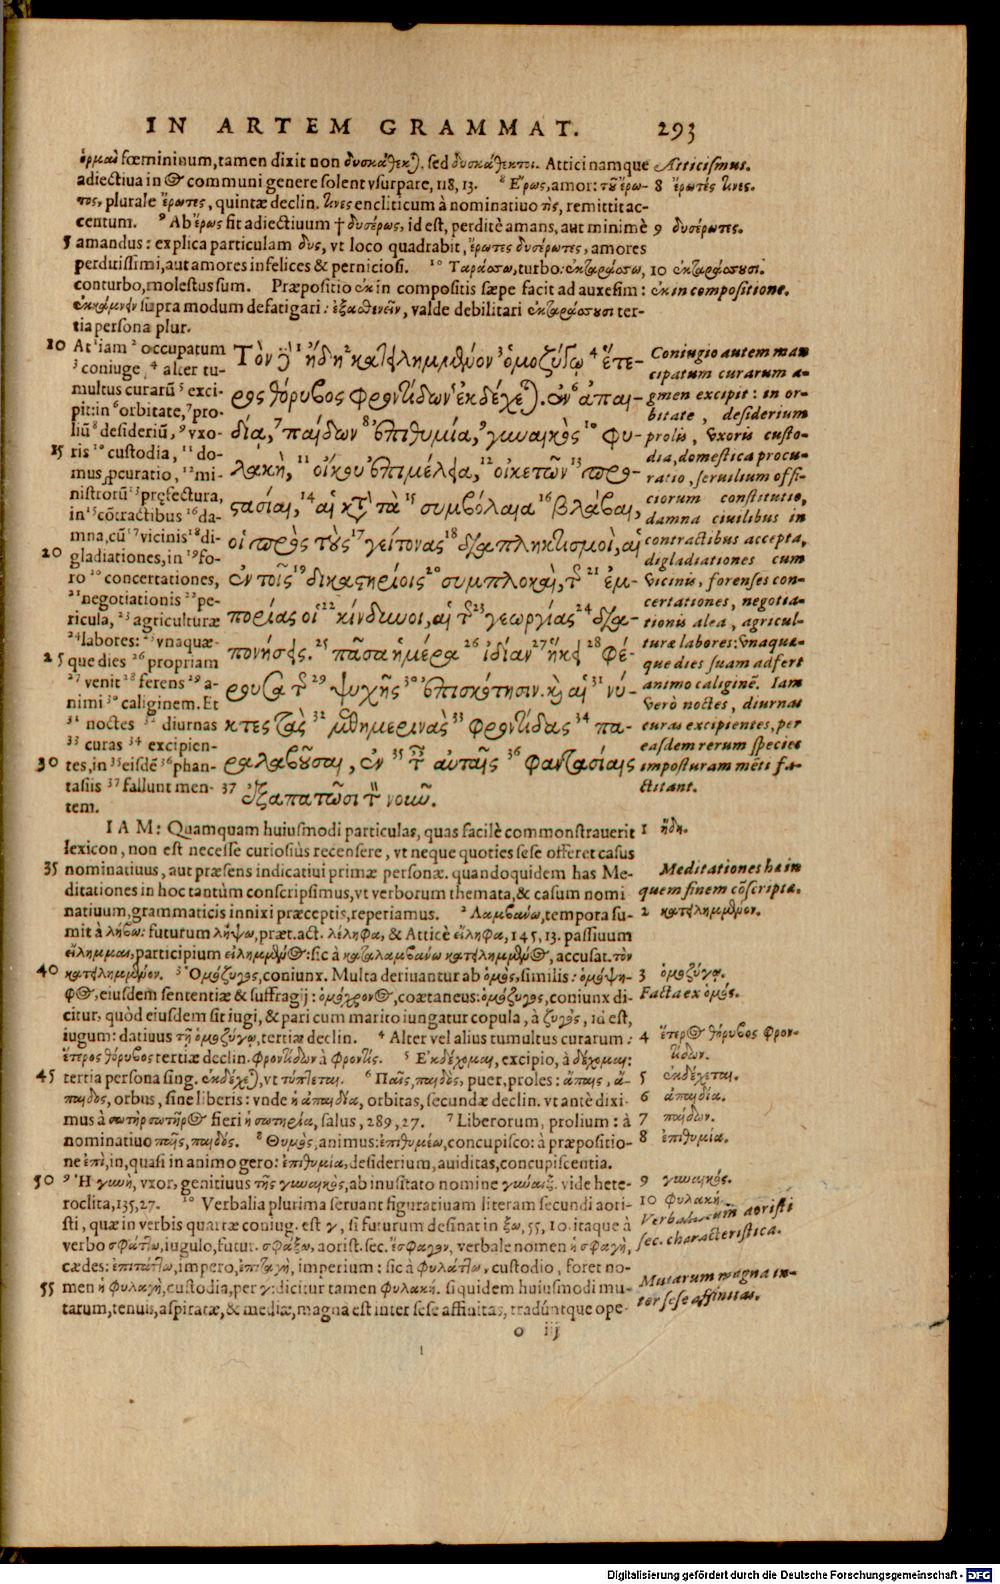 IN ARTEM GRAMMAT. 293
ὁρμαὶ fœmininum, tamen dixit non δυσκάθεκται, sed δυσκάθεκτοι. Attici namque
adiectiua in ος communi genere solent vsurpare, 118, 13. 8 Ἔρως, amor: τοῦ ἔρω-
τος, plurale ἔρωτες, quintæ declin. τινες encliticum à nominatiuo τὶς, remittit ac-
centum. 9 Ab ἔρως fit adiectiuum † δυσέρως, id est, perditè amans, aut minimè
5 amandus: explica particulam δυς, vt loco quadrabit, ἔρωτες δυσέρωτες, amores
perditissimi, aut amores infelices & perniciosi. 10 Ταράσσω, turbo: ἐκταράσσω,
conturbo, molestus sum. Præpositio ἐκ in compositis sæpe facit ad auxesim:
ἐκκάμνειν supra modum defatigari: ἐξασθενεῖν, valde debilitari ἐκταράσσουσι ter-
tia persona plur.
Atticismus.
8 ἔρωτές τινες.
9 δυσέρωτες.
10 ἐκταράσσουσι.
ἐκ in compositione.
10 At 1 iam 2 occupatum
3 coniuge, 4 alter tu-
multus curarũ 5 exci-
pit: in 6 orbitate, 7 pro-
liũ 8 desideriũ, 9 vxo-
15 ris 10 custodia, 11 do-
mus ꝓcuratio, 12 mi-
nistrorũ 13 pręfectura,
in 15 cõtractibus 16 da-
mna, cũ 17 vicinis 18 di-
20 gladiationes, in 19 fo-
ro 20 concertationes,
21 negotiationis 22 pe-
ricula, 23 agriculturæ
24 labores: 25 vnaquæ-
25 que dies 26 propriam
27 venit 28 ferens 29 a-
nimi 30 caliginem. Et
31 noctes 32 diurnas
33 curas 34 excipien-
30 tes, in 35 eisdẽ 36 phan-
tasiis 37 fallunt men-
tem.
Τὸν δὲ 1 ἤδη 2 κατειλημμένον 3 ὁμοζύγῳ 4 ἕτε-
ρος θόρυβος φροντίδων 5 ἐκδέχεται. ἐν 6 ἀπαι-
δίᾳ, 7 παίδων 8 ἐπιθυμία, 9 γυναικὸς 10 φυ-
λακὴ, 11 οἴκου ἐπιμέλεια, 12 οἰκετῶν 13 προ-
στασίαι, 14 αἱ κατὰ τὰ 15 συμβόλαια 16 βλάβαι,
οἱ πρὸς τοὺς 17 γείτονας 18 διαπληκτισμοὶ, αἱ
ἐν τοῖς 19 δικαστηρίοις 20 συμπλοκαὶ, τῆς 21 ἐμ-
πορίας οἱ 22 κίνδυνοι, αἱ τῆς 23 γεωργίας 24 δια-
πονήσεις. 25 πᾶσα ἡμέρα 26 ἰδίαν 27 ἥκει 28 φέ-
ρουσα τῆς 29 ψυχῆς 30 ἐπισκότησιν. καὶ αἱ 31 νύ-
κτες τὰς 32 μεθημερινὰς 33 φροντίδας 34 πα-
ραλαβοῦσαι, ἐν 35 ταῖς αὐταῖς 36 φαντασίαις
37 ἐξαπατῶσι τὸν νοῦν.
Coniugio autem man
cipatum curarum a-
gmen excipit: in or-
bitate, desiderium
prolis, vxoris custo-
dia, domestica procu-
ratio, seruilium offi-
ciorum constitutio,
damna ciuilibus in
contractibus accepta,
digladiationes cum
vicinis, forenses con-
certationes, negotia-
tionis alea, agricul-
turæ labores: vnaquæ-
que dies suam adfert
animo caliginẽ. Iam
verò noctes, diurnas
curas excipientes, per
easdem rerum species
imposturam mẽti fa-
ctitant.
IAM: Quamquam huiusmodi particulas, quas facilè commonstrauerit
lexicon, non est necesse curiosiùs recensere, vt neque quoties sese offeret casus
35 nominatiuus, aut præsens indicatiui primæ personæ. quandoquidem has Me-
ditationes in hoc tantùm conscripsimus, vt verborum themata, & casum nomi
natiuum, grammaticis innixi præceptis, reperiamus. 2 Λαμβάνω, tempora su-
mit à λήβω: futurum λήψω, præt. act. λέληφα, & Atticè εἴληφα, 145, 13. passiuum
εἴλημμαι, participium εἰλημμένος: sic à καταλαμβάνω κατειλημμένος, accusat. τὸν
40 κατειλημμένον. 3 Ὁμόζυγος, coniunx. Multa deriuantur ab ὁμὸς, similis: ὁμόψη-
φος, eiusdem sententiæ & suffragij: ὁμόχρονος, coætaneus: ὁμόζυγος, coniunx di-
citur, quòd eiusdem sit iugi, & pari cum marito iungatur copula, à ζυγὸς, id est,
iugum: datiuus τῇ ὁμοζύγῳ, tertiæ declin. 4 Alter vel alius tumultus curarum:
ἕτερος θόρυβος tertiæ declin. φροντίδων à φροντίς. 5 Ἐκδέχομαι, excipio, à δέχομαι:
45 tertia persona sing. ἐκδέχεται, vt τύπτεται. 6 Παῖς, παιδὸς, puer, proles: ἄπαις, ἄ-
παιδος, orbus, sine liberis: vnde ἡ ἀπαιδία, orbitas, secundæ declin. vt antè dixi-
mus à σωτὴρ σωτῆρος fieri ἡ σωτηρία, salus, 289, 27. 7 Liberorum, prolium: à
nominatiuo παῖς, παιδός. 8 Θυμὸς, animus: ἐπιθυμέω, concupisco: à præpositio-
ne ἐπὶ, in, quasi in animo gero: ἐπιθυμία, desiderium, auiditas, concupiscentia.
50 9 Ἡ γυνὴ, vxor, genitiuus τῆς γυναικὸς, ab inusitato nomine γύναιξ. vide hete-
roclita, 135, 27. 10 Verbalia plurima seruant figuratiuam literam secundi aori-
sti, quæ in verbis quartæ coniug. est γ, si futurum desinat in ξω, 55, 10. itaque à
verbo σφάττω, iugulo, futur. σφάξω, aorist. sec. ἔσφαγον, verbale nomen ἡ σφαγὴ,
cædes: ἐπιτάττω, impero, ἐπιταγὴ, imperium: sic à φυλάττω, custodio, foret no-
55 men ἡ φυλαγὴ, custodia, per γ: dicitur tamen φυλακή. siquidem huiusmodi mu-
tarum, tenuis, aspiratæ, & mediæ, magna est inter sese affinitas, tradúntque ope-
1 ἤδη.
Meditationes hæ in
quem finem cõscriptæ.
2 κατειλημμένον.
3 ὁμοζύγῳ.
Facta ex ὁμός.
4 ἕτερος θόρυβος φρον-
τίδων.
5 ἐκδέχεται.
6 ἀπαιδία.
7 παίδων.
8 ἐπιθυμία.
9 γυναικός.
10 φυλακή
Verbalium aoristi
sec. characteristica.
Mutarum magna in-
ter sese affinitas.
o iij
Digitalisierung gefördert durch die Deutsche Forschungsgemeinschaft - DFG